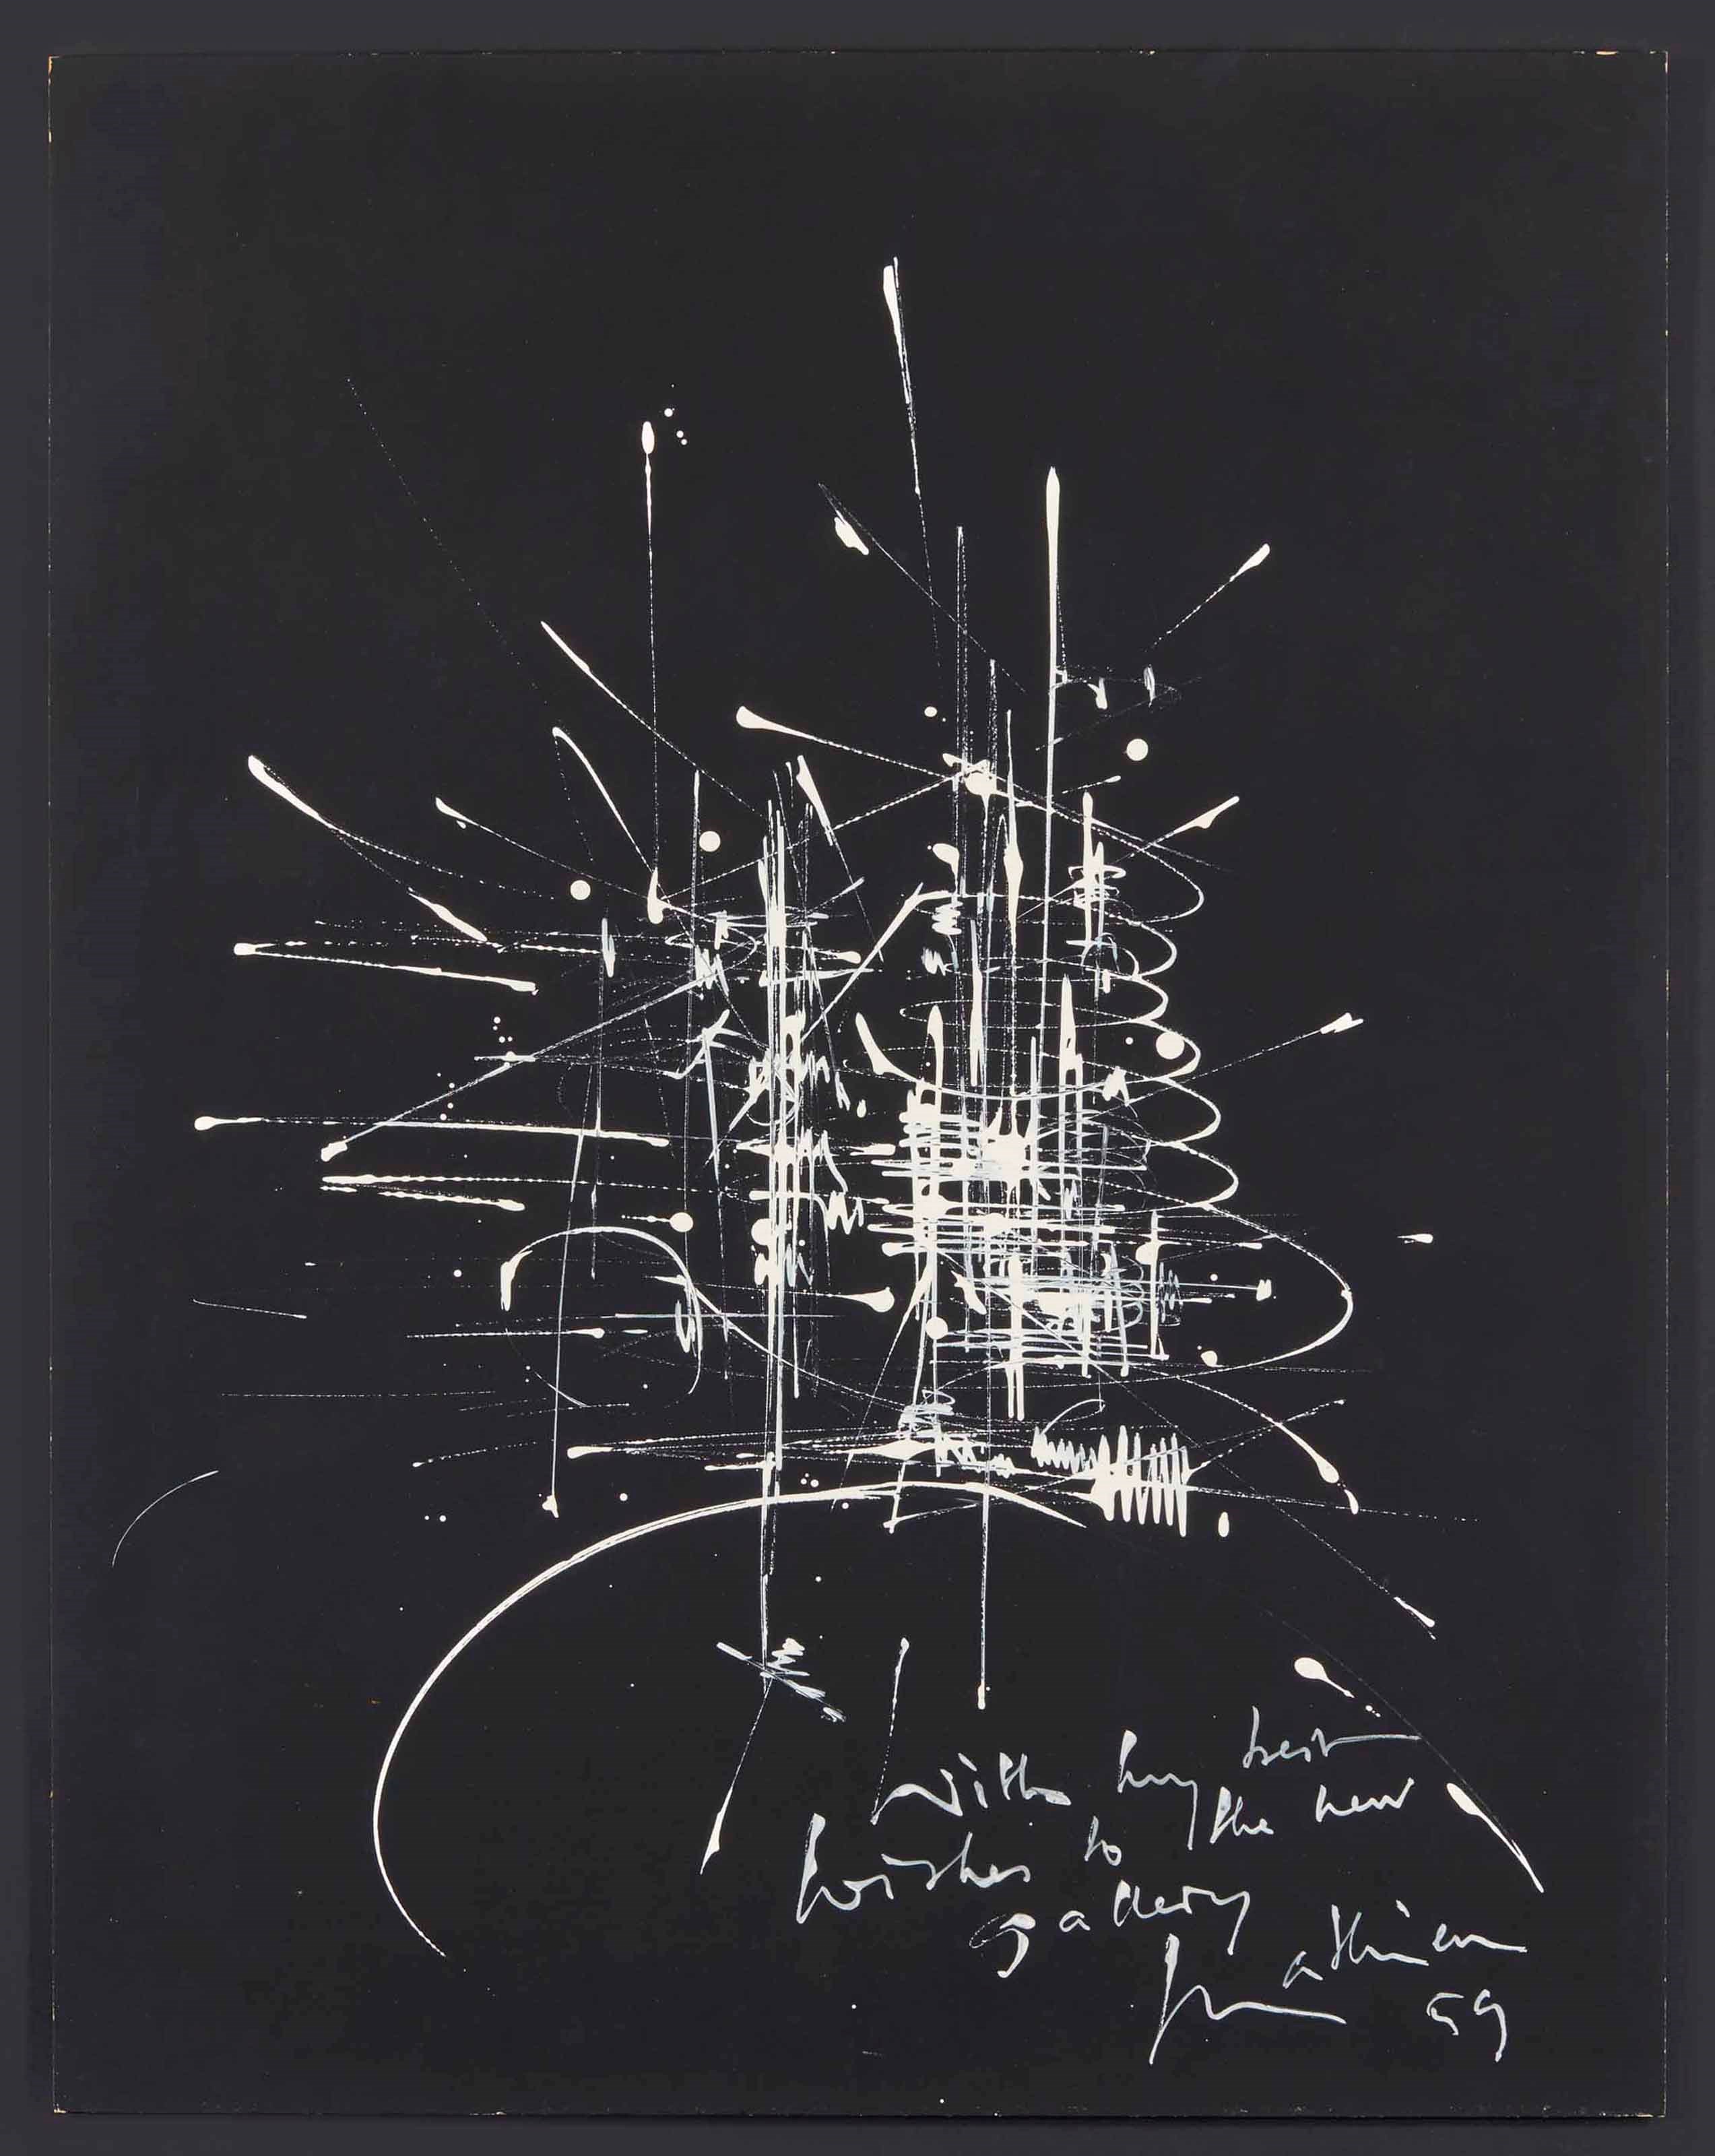 With my best
wishes to the new
gallery
Mathieu
59